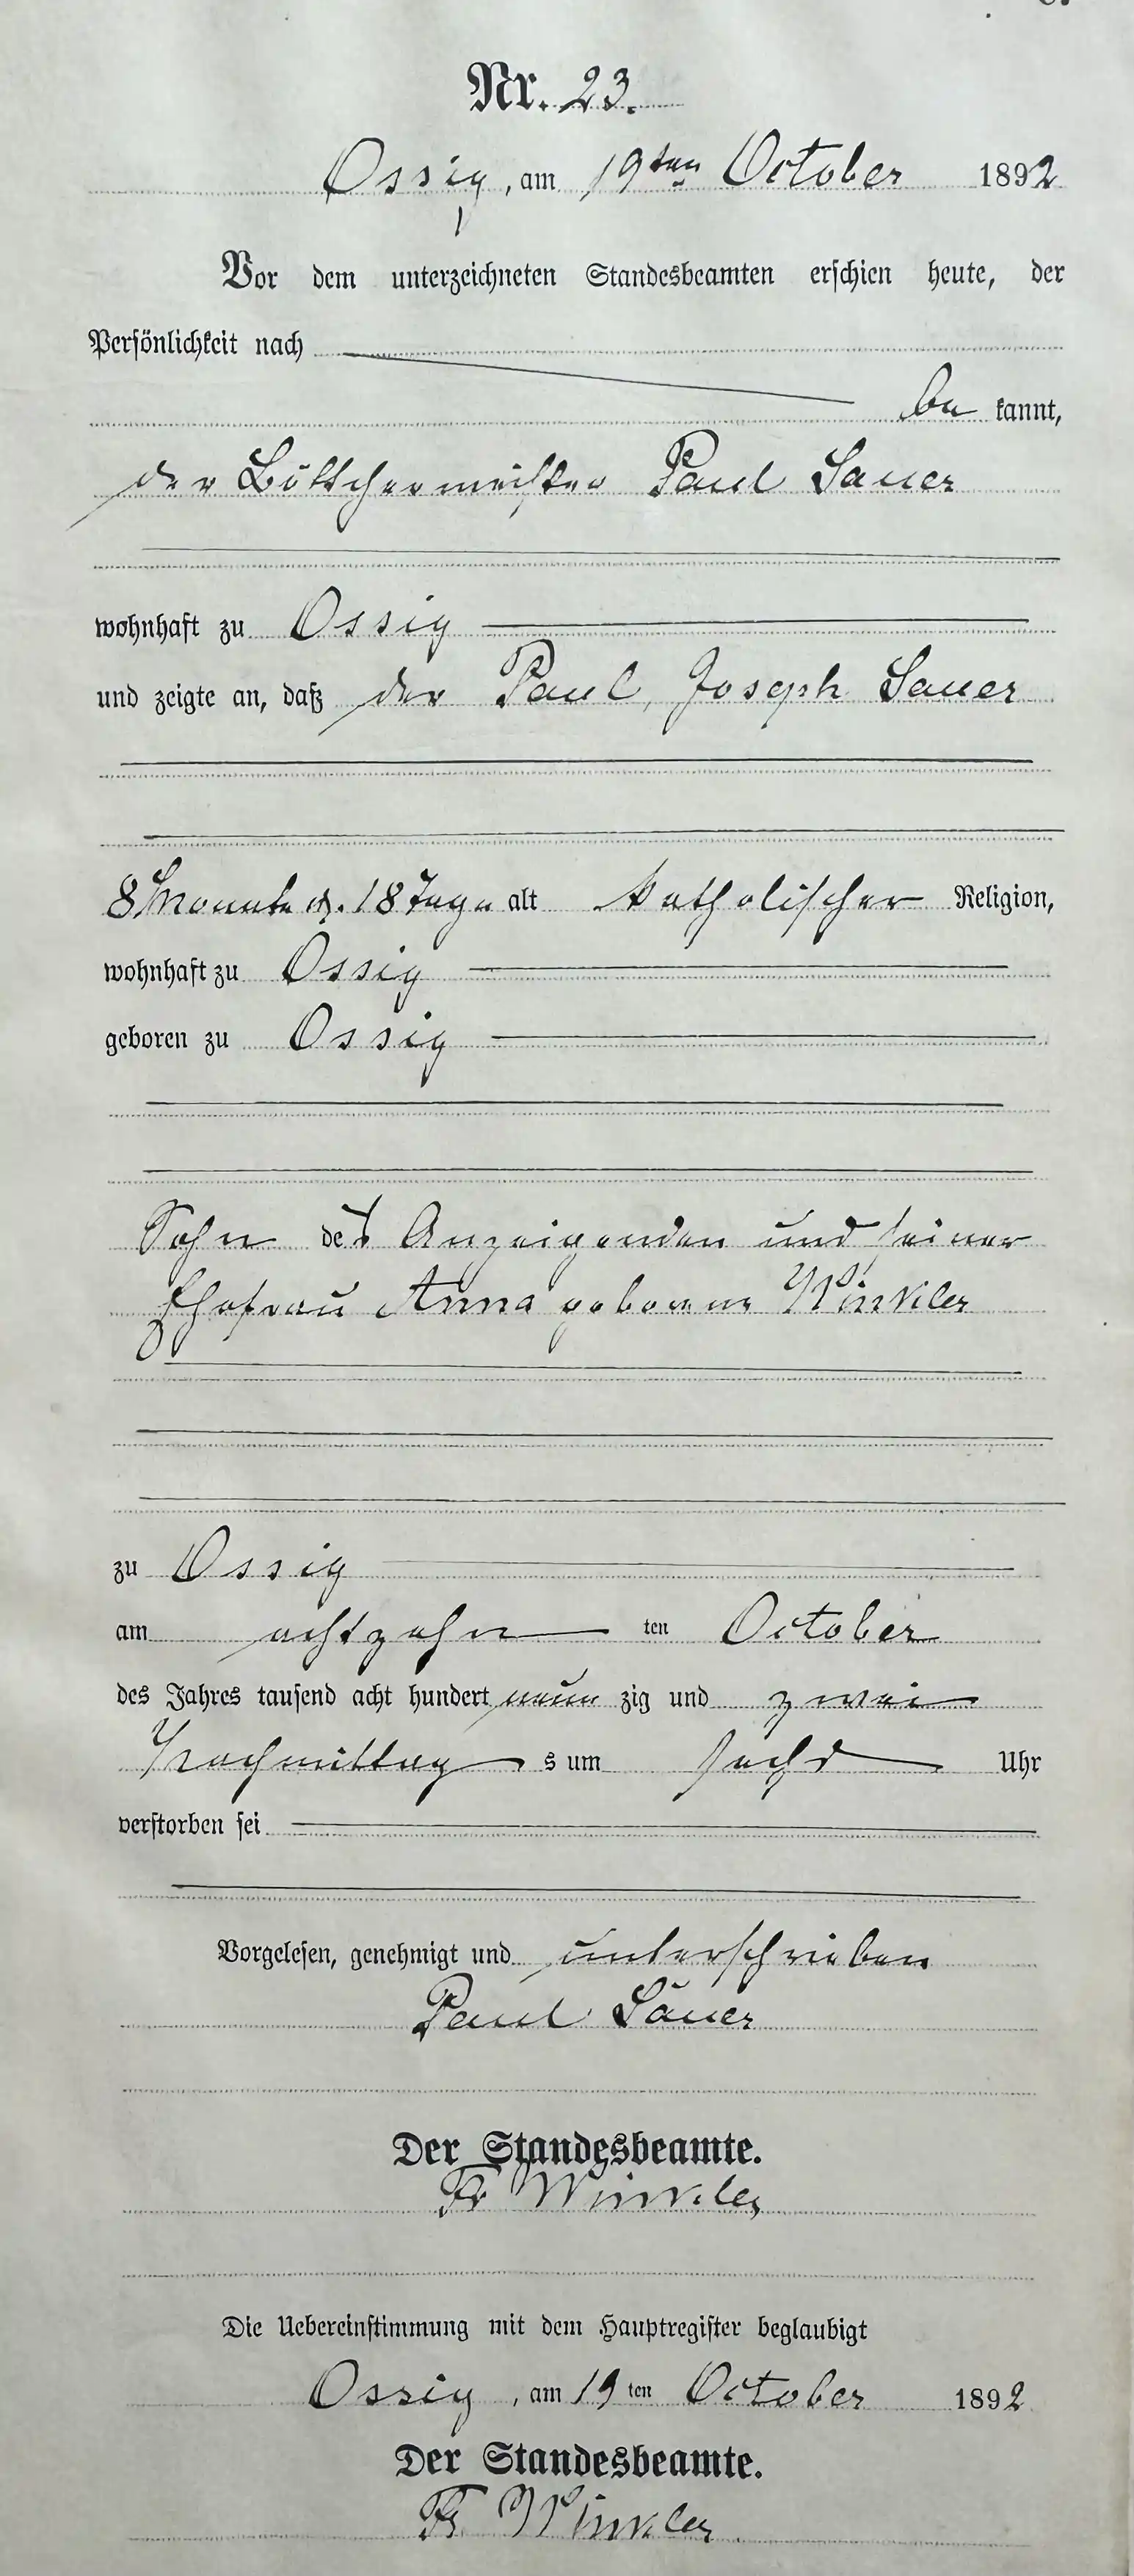 Nr. 23.
Ossig, am 19ten October 1892
Vor dem unterzeichneten Standesbeamten erschien heute, der
Persönlichkeit nach
be kannt,
der Böttchermeister Paul Sauer
wohnhaft zu Ossig
und zeigte an, daß der Paul, Joseph Sauer
8 Monate u. 18 Tage alt katholischer Religion,
wohnhaft zu Ossig
geboren zu Ossig
Sohn des Anzeigenden und seiner
Ehefrau Anna geborene Winkler
zu Ossig
am achtzehn ten October
des Jahres tausend acht hundert neun zig und zwei
Nachmittag s um sechs Uhr
verstorben sei
Vorgelesen, genehmigt und unterschrieben
Paul Sauer
Der Standesbeamte.
Fr Winkler
Die Uebereinstimmung mit dem Hauptregister beglaubigt
Ossig, am 19 ten October 1892
Der Standesbeamte.
Fr Winkler